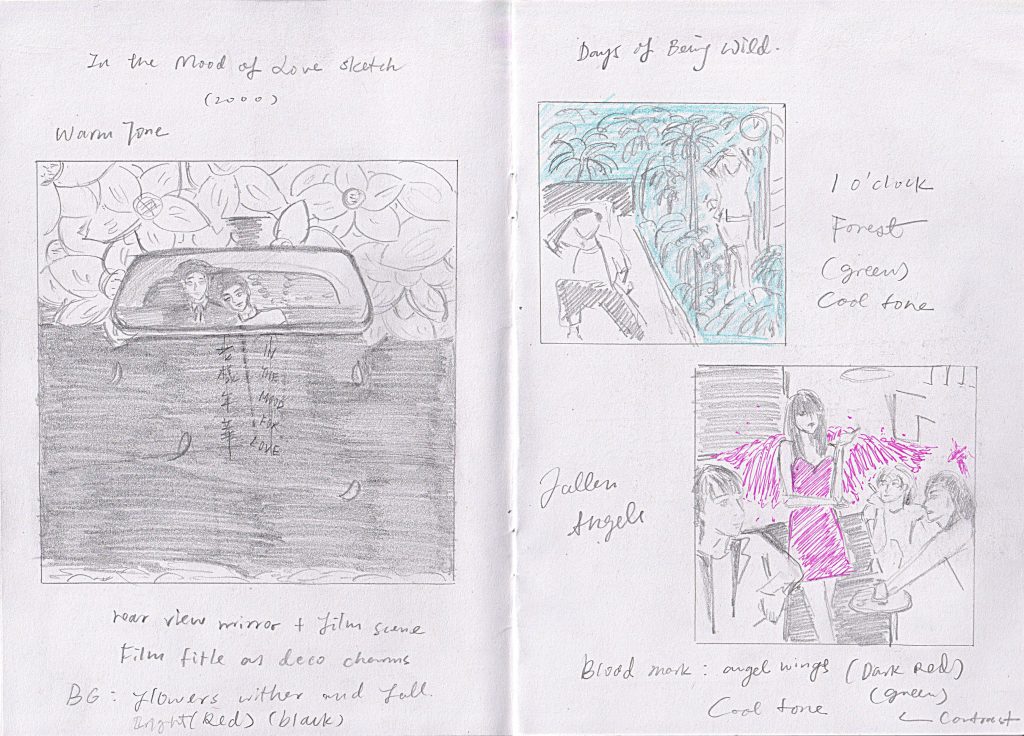 In the Mood of Love sketch
(2000)
Warm Tone
花樣年華
IN
THE
MOOD
FOR
LOVE
rear view mirror + film scene
Film title as deco charms
BG: flowers wither and fall.
Bright (Red) (black)
Days of Being Wild.
1 o'clock
Forest
(green)
Cool tone
Fallen
Angels
Blood mark: angel wings (Dark Red)
(green)
Cool tone
Contrast